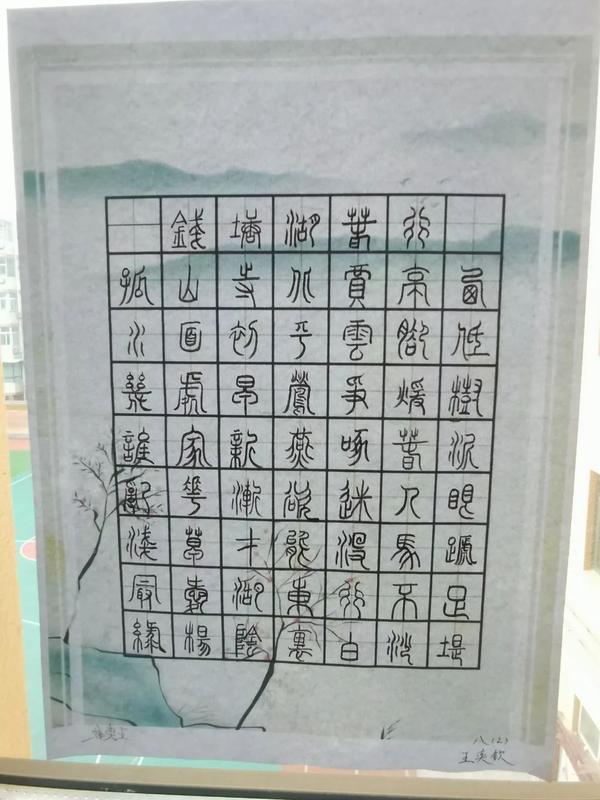 錢塘湖春行
孤山寺北賈亭西
水面初平雲腳低
幾處早鶯爭煖樹
誰家新燕啄春泥
亂花漸欲迷人眼
淺草才能沒馬蹄
最愛湖東行不足
綠楊陰裏白沙堤
八(2)